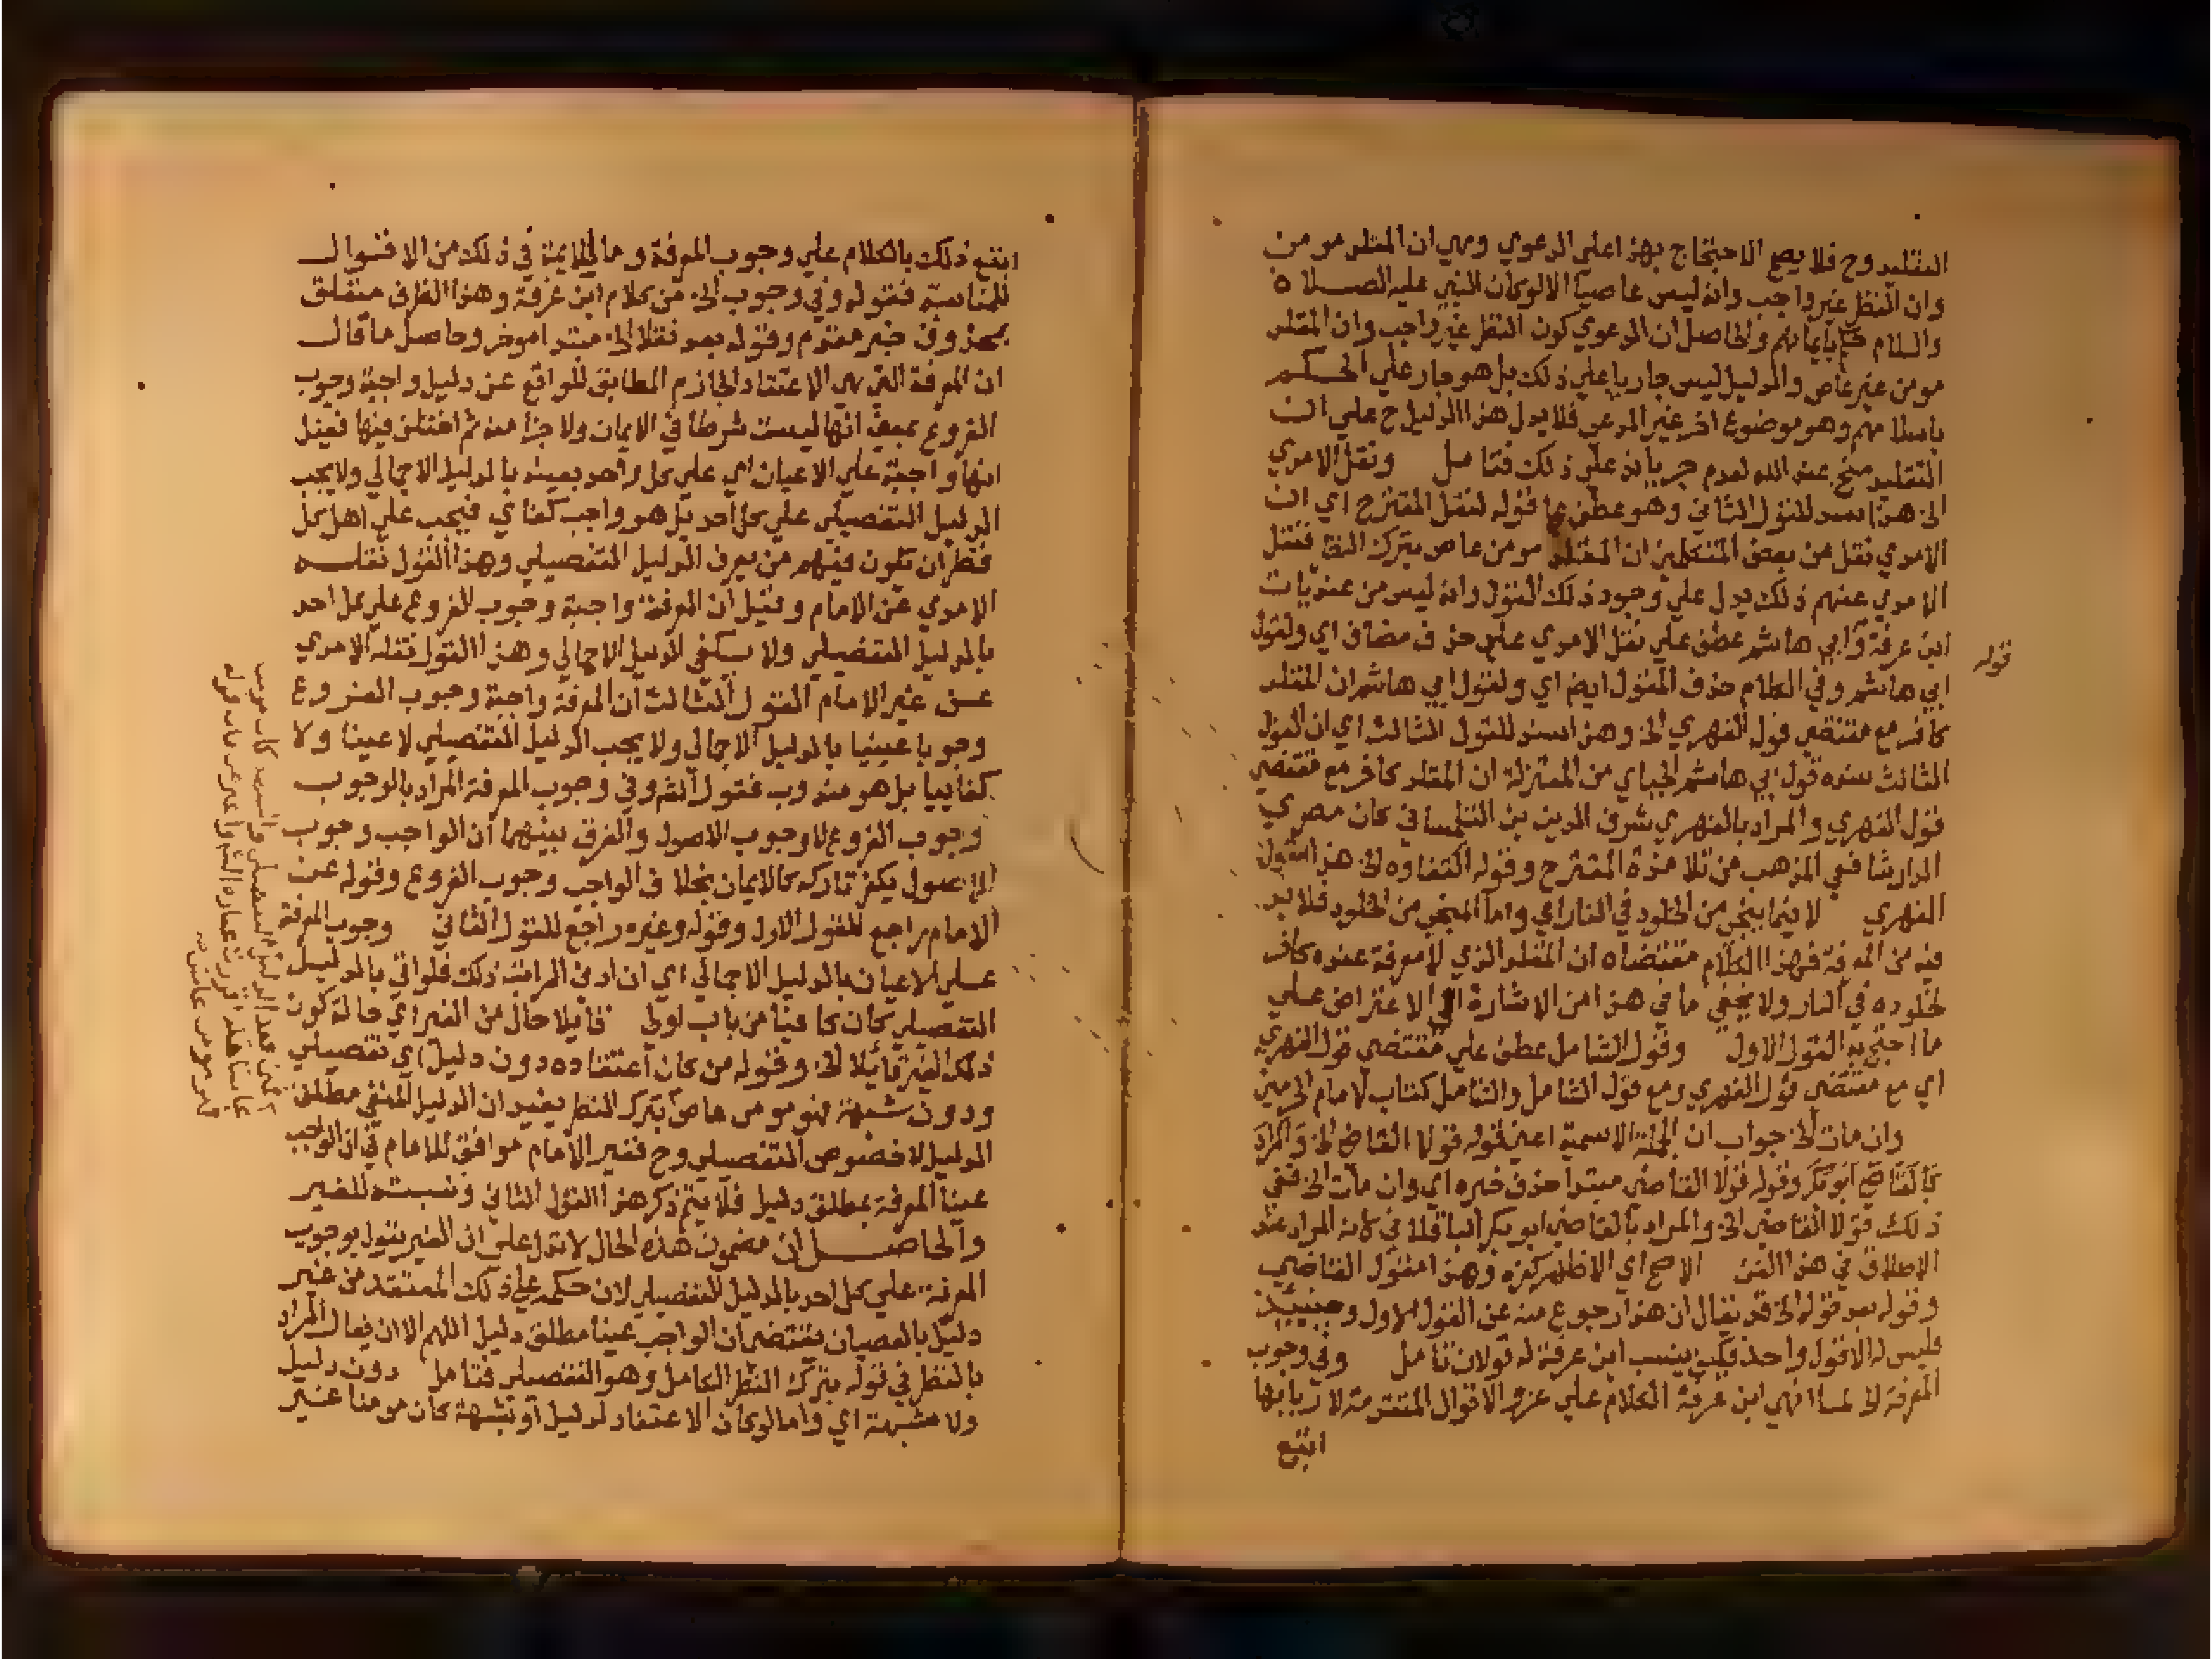 التقليد وح فلا يصح الاحتجاج بهذا علي الدعوي وهي ان المقلد مومن
وان النظر غير واجب وانه ليس عاصيا الا لو كان النبي عليه الصلاة
والسلام حكم بايمانهم والحاصل ان الدعوي كون النظر غير واجب وان المقلد
مومن غير عاص والدليل ليس جاريا علي ذلك بل هو جار علي الحكم
باسلامهم وهو موضوع اخر غير المدعي فلا يدل هذا الدليل ح علي ان
التقليد منج عند الله لعدم جريانه علي ذلك فتامل ونقل الامدي
الخ هذا سند للقول الثاني وهو عطف علي قوله لنقل المقترح اي ان
الامدي نقل عن بعض المتكلمين ان المقلد مومن عاص بترك النظر فنقل
الامدي عنهم ذلك يدل علي وجود ذلك القول وانه ليس من عنديات
ابن عرفة وابي هاشم عطف علي نقل الامدي علي حذف مضاف اي ولقول
قوله
ابي هاشم وفي الكلام حذف المقول ايضا اي ولقول ابي هاشم ان المقلد
كافر مع مقتضي قول الفهري الخ وهذا سند للقول الثالث اي ان القول
الثالث سنده قول ابي هاشم الجباي من المعتزلة ان المقلد كافر مع مقتضي
قول الفهري والمراد بالفهري شرف الدين بن التلمساني كان مصري
الدار شافعي المذهب من تلامذة المقترح وقوله اكتفاوه الخ هذا مقول
الفهري لا ينجي من الخلود في النار اي واما المنجي من الخلود فلا بد
فيه من المعرفة فهذا الكلام مقتضاه ان المقلد الذي لا معرفة عنده كافر
لخلوده في النار ولا يخفي ما في هذا من الاشارة الي الاعتراض علي
ما احتج به القول الاول وقول الشامل عطف علي مقتضي قول الفهري
اي مع مقتضي قول الفهري ومع قول الشامل والشامل كتاب لامام الحرمين
وان مات الخ جواب ان الجملة الاسمية اعني قوله قولا القاضي الخ والمراد
بالقاضي ابو بكر وقوله قولا القاضي مبتدا حذف خبره اي وان مات الخ ففي
ذلك قولا القاضي الخ والمراد بالقاضي ابو بكر الباقلاني لانه المراد عند
الاطلاق في هذا الفن الاصح اي الاظهر كفره وهذا مقول القاضي
وقوله بعد قوله الخ قد يقال ان هذا رجوع منه عن القول الاول وحينيذ
فليس له الا قول واحد فكيف ينسب ابن عرفة له قولان تامل وفي وجوب
المعرفة الخ لما انهي ابن عرفة الكلام علي عزو الاقوال المتقدمة لاربابها
اتبع
اتبع ذلك بالكلام علي وجوب المعرفة وما للائمة في ذلك من الاقوال
للمناسبة فقوله وفي وجوب الخ من كلام ابن عرفة وهذا الظرف متعلق
بمحذوف خبر مقدم وقوله بعد نقلا الخ مبتدا موخر وحاصل ما قال
ان المعرفة التي هي الاعتقاد الجازم المطابق للواقع عن دليل واجبة وجوب
الفروع بمعني انها ليست شرطا في الايمان ولا جزا منه ثم اختلف فيها فقيل
انها واجبة علي الاعيان اي علي كل واحد بعينه بالدليل الاجمالي ولا يجب
الدليل التفصيلي علي كل احد بل هو واجب كفاي فيجب علي اهل كل
قطر ان تكون فيهم من يعرف الدليل التفصيلي وهذا القول نقله
الامدي عن الامام وقيل ان المعرفة واجبة وجوب الفروع علي كل احد
بالدليل التفصيلي ولا يكفي الدليل الاجمالي وهذا القول نقله الامدي
عن غير الامام القول الثالث ان المعرفة واجبة وجوب الفروع
وجوبا عينيا بالدليل الاجمالي ولا يجب الدليل التفصيلي لا عينا ولا
كفاييا بل هو مندوب فقول الشم وفي وجوب المعرفة المراد بالوجوب
وجوب الفروع لا وجوب الاصول والفرق بينهما ان الواجب وجوب
الاصول يكفر تاركه كالايمان بخلاف الواجب وجوب الفروع وقوله عن
الامام راجع للقول الاول وقوله وغيره راجع للقول الثاني وجوب المعرفة
علي الاعيان بالدليل الاجمالي اي ان ادني المراتب ذلك فلو اتي بالدليل
التفصيلي كان كافيا من باب اولي قايلا حال من الغير اي حالة كون
ذلك الغير قائلا الخ وقوله من كان اعتقاده دون دليل اي تفصيلي
ودون شبهة فهو مومن عاص بترك النظر يفيد ان الدليل المنفي مطلق
الدليل لا خصوص التفصيلي وح فغير الامام موافق للامام في ان الواجب
عينا المعرفة بمطلق دليل فلا يتم ذكر هذا القول الثاني ونسبته للغير
والحاصل ان مضمون هذه الحال لا تدل علي ان الغير يقول بوجوب
المعرفة علي كل احد بالدليل التفصيلي لان حكمه علي ذلك المعتقد من غير
دليل بالعصيان يقتضي ان الواجب عينا مطلق دليل اللهم الا ان يقال المراد
بالنظر في قوله بترك النظر الكامل وهو التفصيلي فتامل دون دليل
ولا شبهة اي واما لو كان الاعتقاد لدليل او شبهة كان مومنا غير